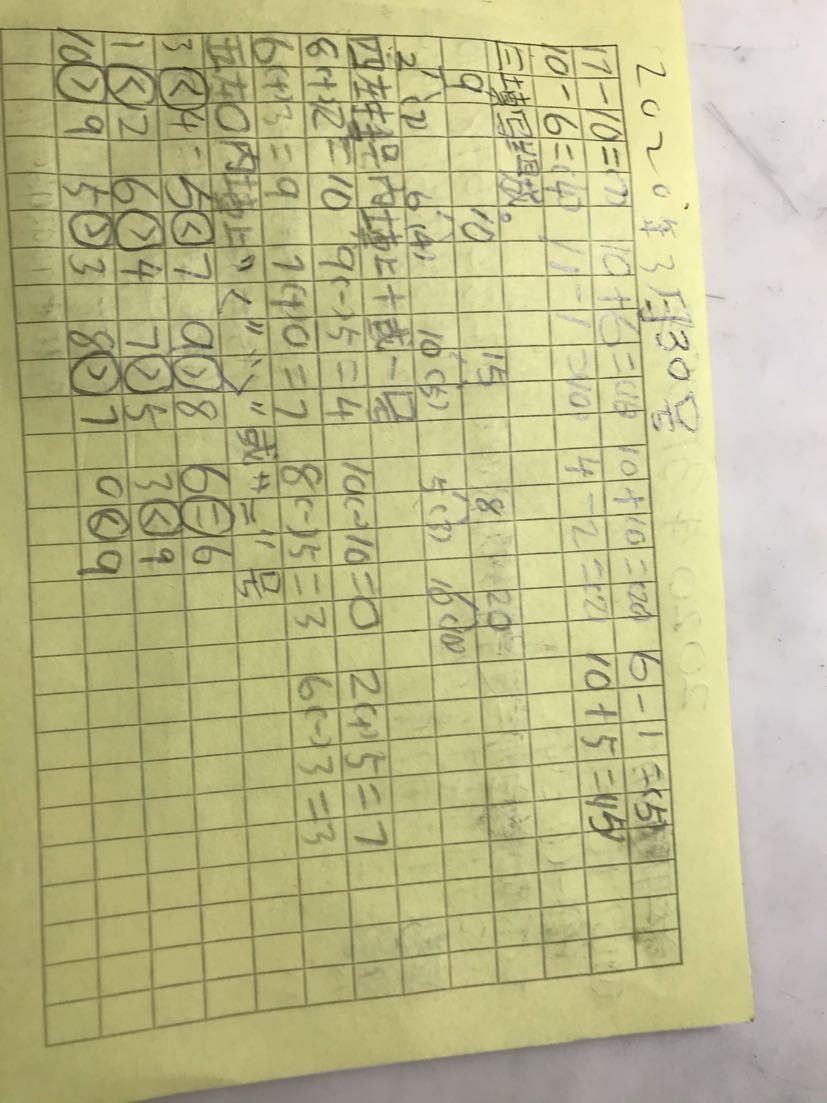 2020年3月30号
17-10=(7) 10+6=(16) 10+10=(20) 6-1=(5)
10-6=(4) 11-1=(10) 4-2=(2) 10+5=(15)
三填写组成。
9 10 15 8 20
2 (7) 6 (4) 10 (5) 5 (3) 10 (10)
四在括号内填上+或-号
8(+)2=10 9(-)5=4 10(-)10=0 2(+)5=7
6(+)3=9 7(+)0=7 8(-)5=3 6(-)3=3
五在○内填上"<" ">"或"="号
3<4 5<7 9>8 6=6
1<2 6>4 7>5 3<9
10>9 5>3 8>7 0<9